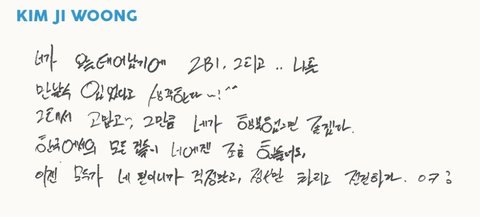 KIM JI WOONG
네가 오늘 태어났기에 ZB1, 그리고.. 나를
만날 수 있었다고 생각한다~!^^
그래서 고맙고~, 그만큼 네가 행복했으면 좋겠다.
한국에서의 모든 것들이 너에겐 조금 힘들어도,
이젠 모두가 네 편이니까 걱정말고, 정신만 차리고 전진하자.